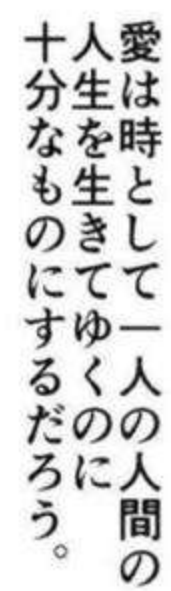 愛は時として一人の人間の
人生を生きてゆくのに
十分なものにするだろう。